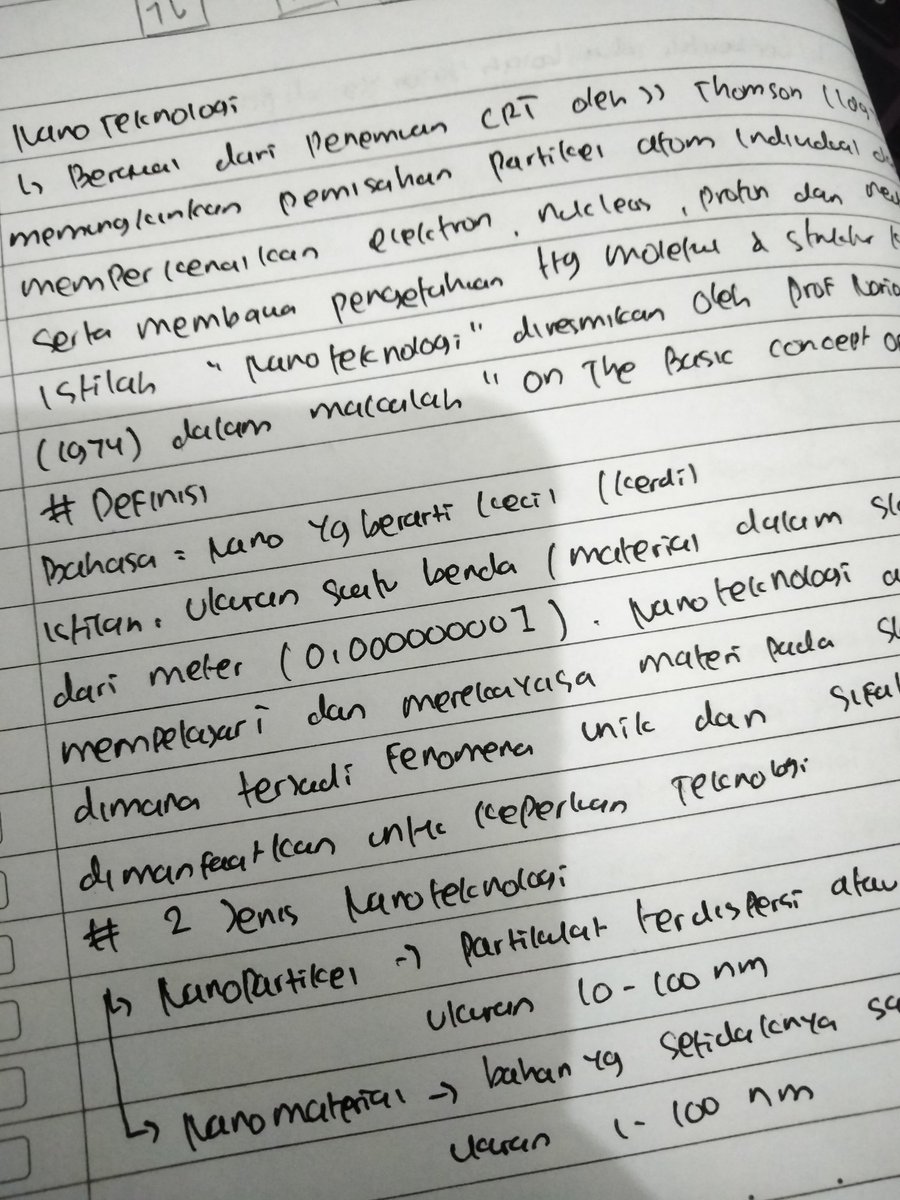 Nano Teknologi
↳ Berawal dari penemuan CRT oleh JJ Thomson
memungkinkan pemisahan partikel atom individual
memperkenalkan elektron, nucleus, proton dan
serta membawa pengetahuan ttg molekul & struktur
Istilah "Nanoteknologi" diresmikan oleh Prof Norio
(1974) dalam makalah "On The Basic concept
# Definisi
Bahasa = Nano yg berarti kecil (kerdil)
Istilah : Ukuran suatu benda (material dalam
dari meter (0,000000001). Nanoteknologi
mempelajari dan merekayasa materi pada
dimana terjadi fenomena unik dan
dimanfaatkan untk keperluan Teknologi
# 2 Jenis Nanoteknologi
↳ Nanopartikel → partikulat terdispersi atau
Ukuran 10 - 100 nm
↳ Nanomaterial → bahan yg setidaknya
Ukuran 1 - 100 nm